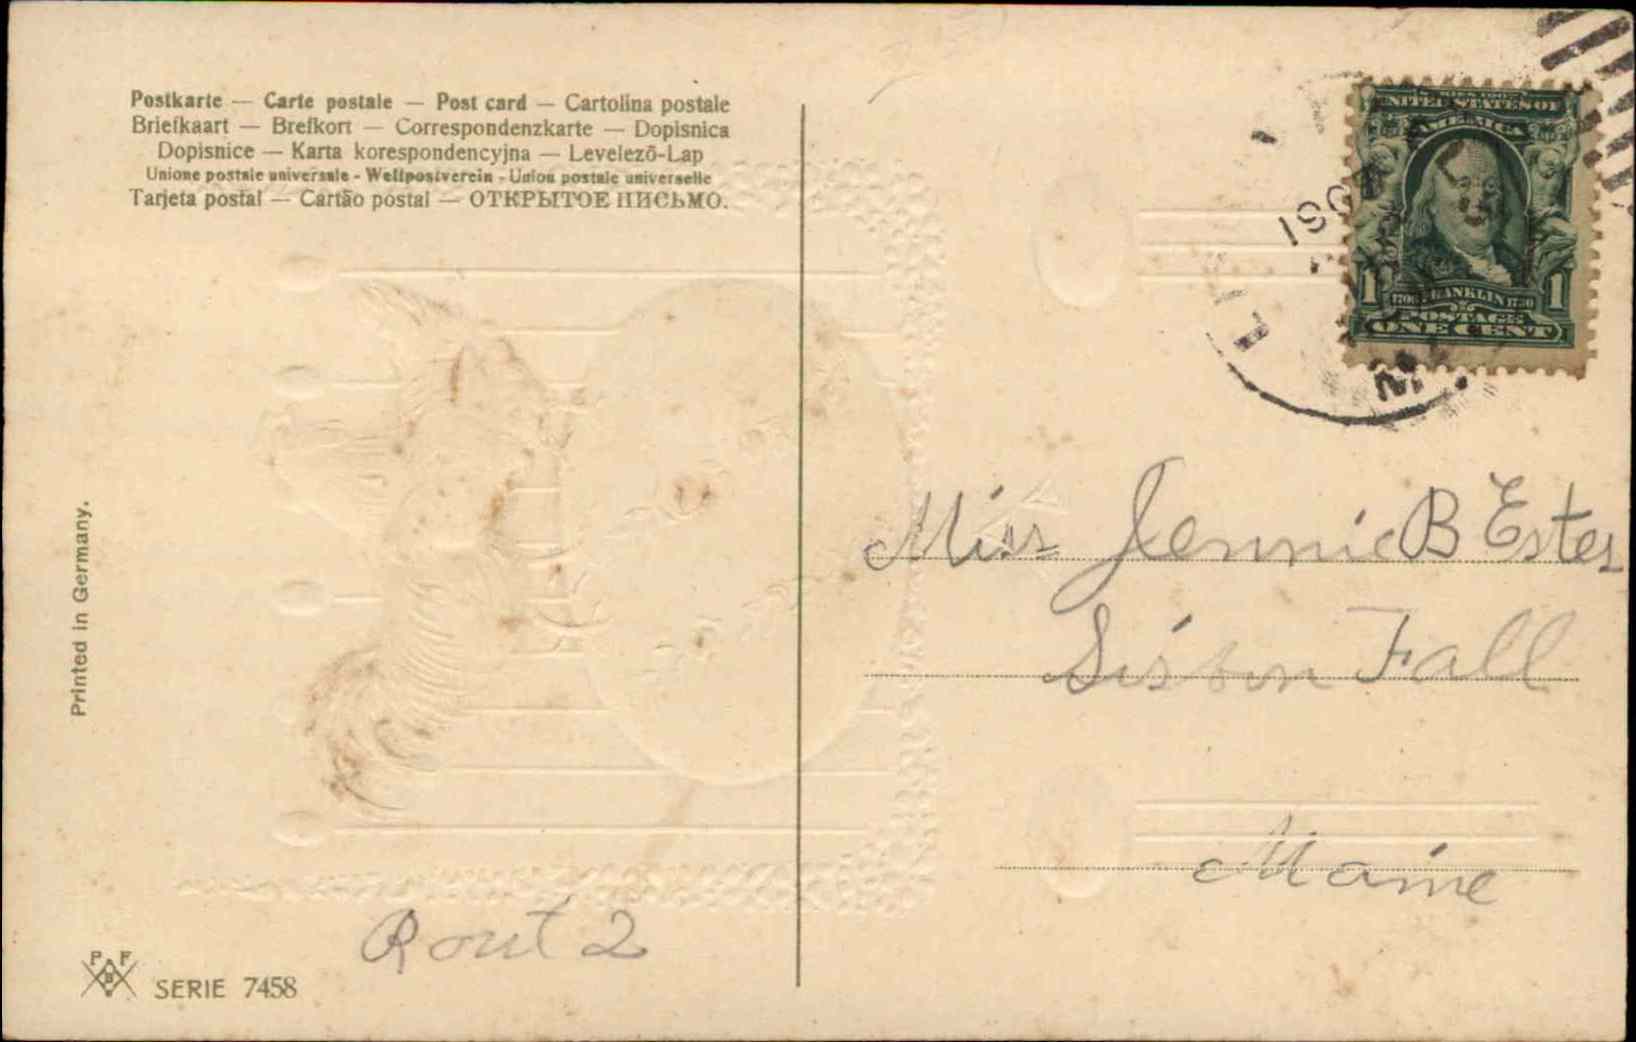 Postkarte — Carte postale — Post card — Cartolina postale
Briefkaart — Brefkort — Correspondenzkarte — Dopisnica
Dopisnice — Karta korespondencyjna — Levelezõ-Lap
Unione postale universale - Weltpostverein - Union postale universelle
Tarjeta postal — Cartão postal — ОТКРЫТОЕ ПИСЬМО.
UNITED STATES OF
AMERICA
1 1706 FRANKLIN 1790 1
POSTAGE
ONE CENT
Miss Jennie B Estes
Lisbon Fall
Maine
Rout 2
Printed in Germany.
P F B
SERIE 7458